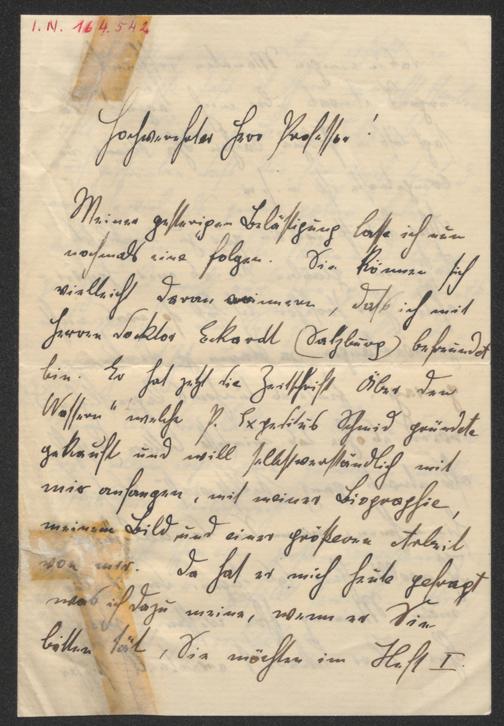 I. N. 164.542
Hochverehrter Herr Professor!
Meiner gestrigen Belästigung lasse ich nun
nochmals eine folgen. Sie können sich
vielleicht daran erinnern, daß ich mit
Herrn Doktor Eckardt (Salzburg) befreundet
bin. Er hat jetzt die Zeitschrift Über den
Wassern" welche P. Expeditus Schmid gründete
gekauft und will selbstverständlich mit
mir anfangen, mit meiner Biographie,
meinem Bild und einer größeren Arbeit
von mir. Da hat er mich heute gefragt
was ich dazu meine, wenn er Sie
bitten tät, Sie möchten im Heft I.